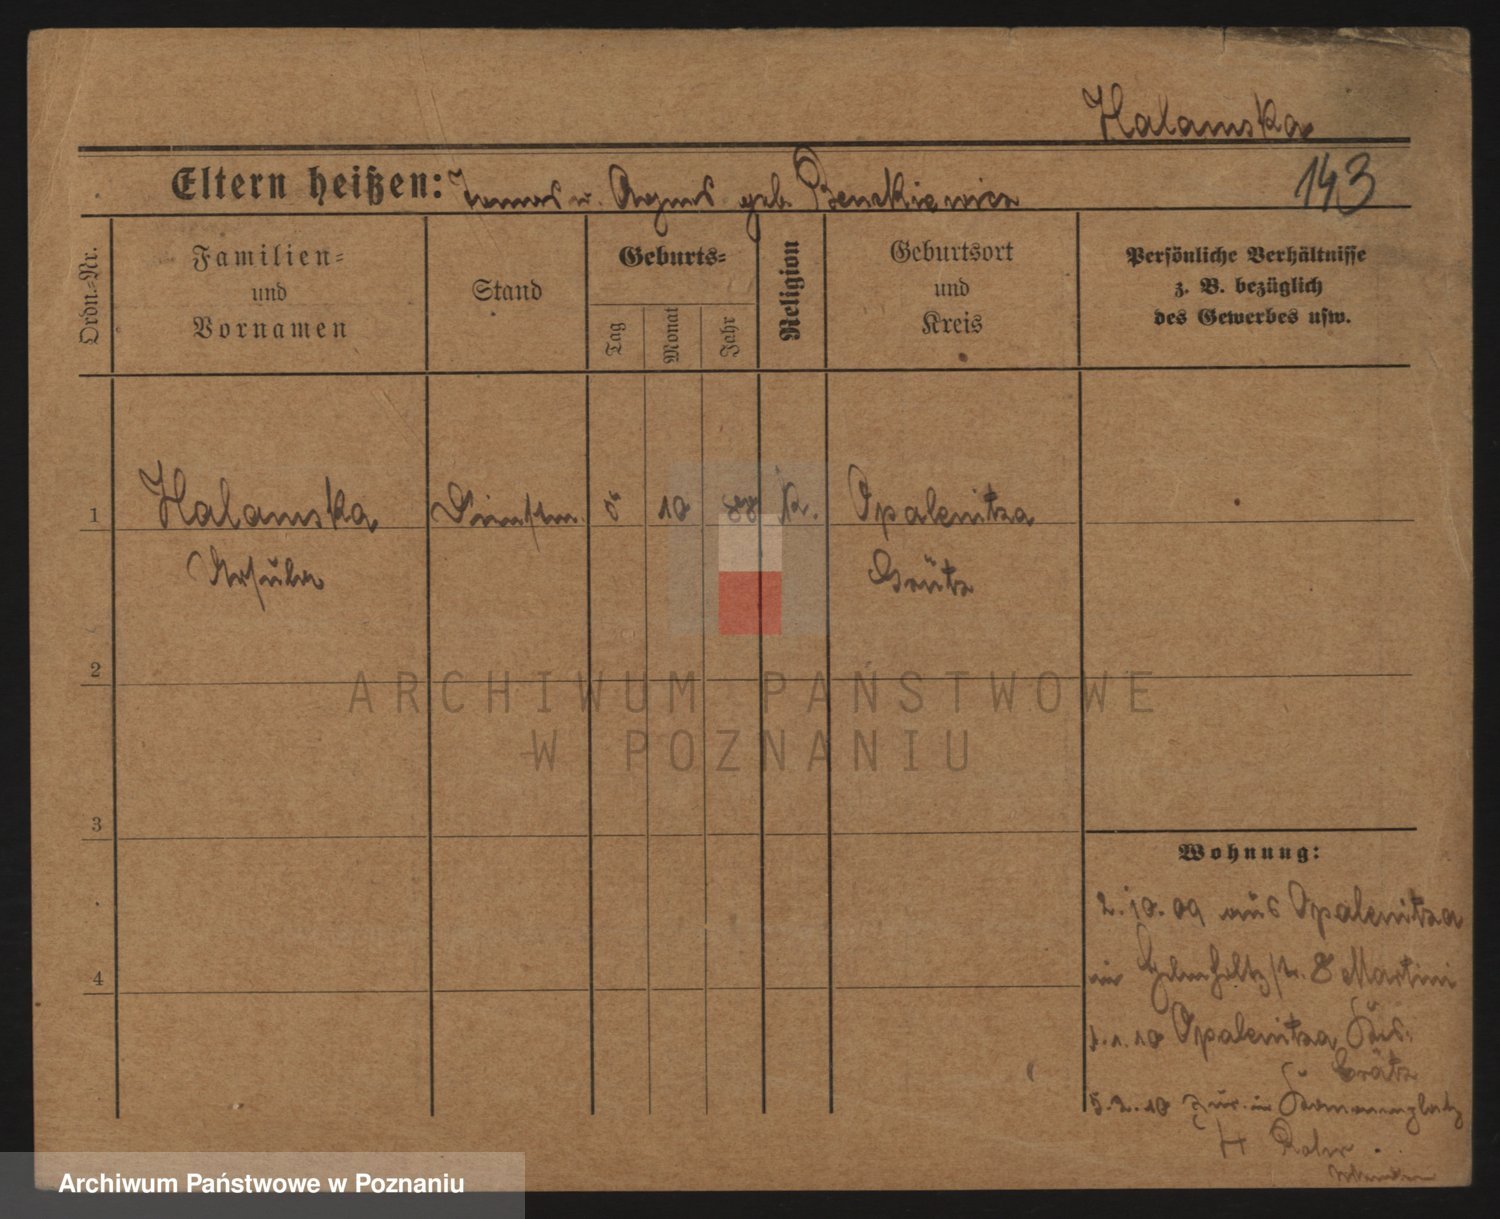 Halamska
Eltern heißen: Tomas u. Agnes geb. Benckiewicz
143
Ordn.-Nr.
Familien-
und
Vornamen
Stand
Geburts-
Tag
Monat
Jahr
Religion
Geburtsort
und
Kreis
Persönliche Verhältnisse
z. B. bezüglich
des Gewerbes usw.
1
Halamska Dienstm. 10 88 K. Opalenitza
Ursula
Grätz
2
3
4
Wohnung:
2.10.09 aus Opalenitza
in Helmholtzstr. 8 Martini
1.1.10 Opalenitza Krs.
Grätz
5.2.10 zur. in
ARCHIWUM PAŃSTWOWE
W POZNANIU
Archiwum Państwowe w Poznaniu